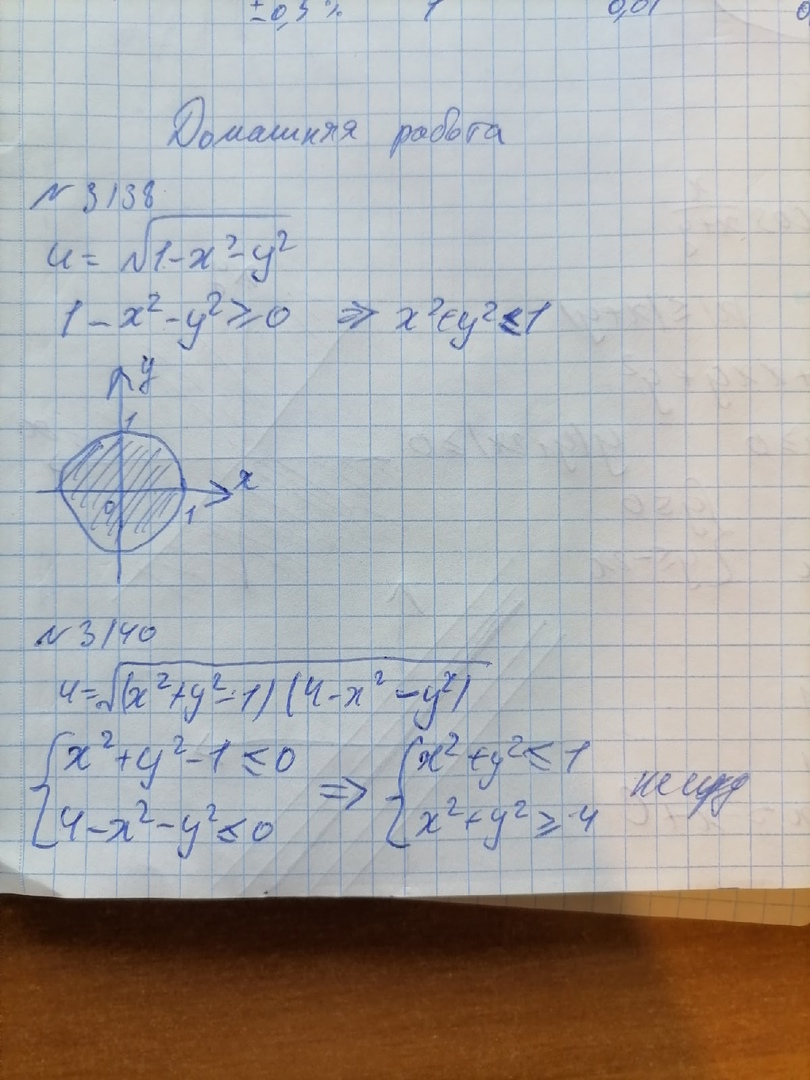 ±0,5% 1 0,01 0
Домашняя работа
N 3138
u = √(1-x²-y²)
1-x²-y² ≥ 0 ⇒ x²+y² ≤ 1
y
1
x
0
1
N 3140
u = √((x²+y²-1)(4-x²-y²))
{ x²+y²-1 ≤ 0 ⇒ { x²+y² ≤ 1
4-x²-y² ≤ 0 x²+y² ≥ 4